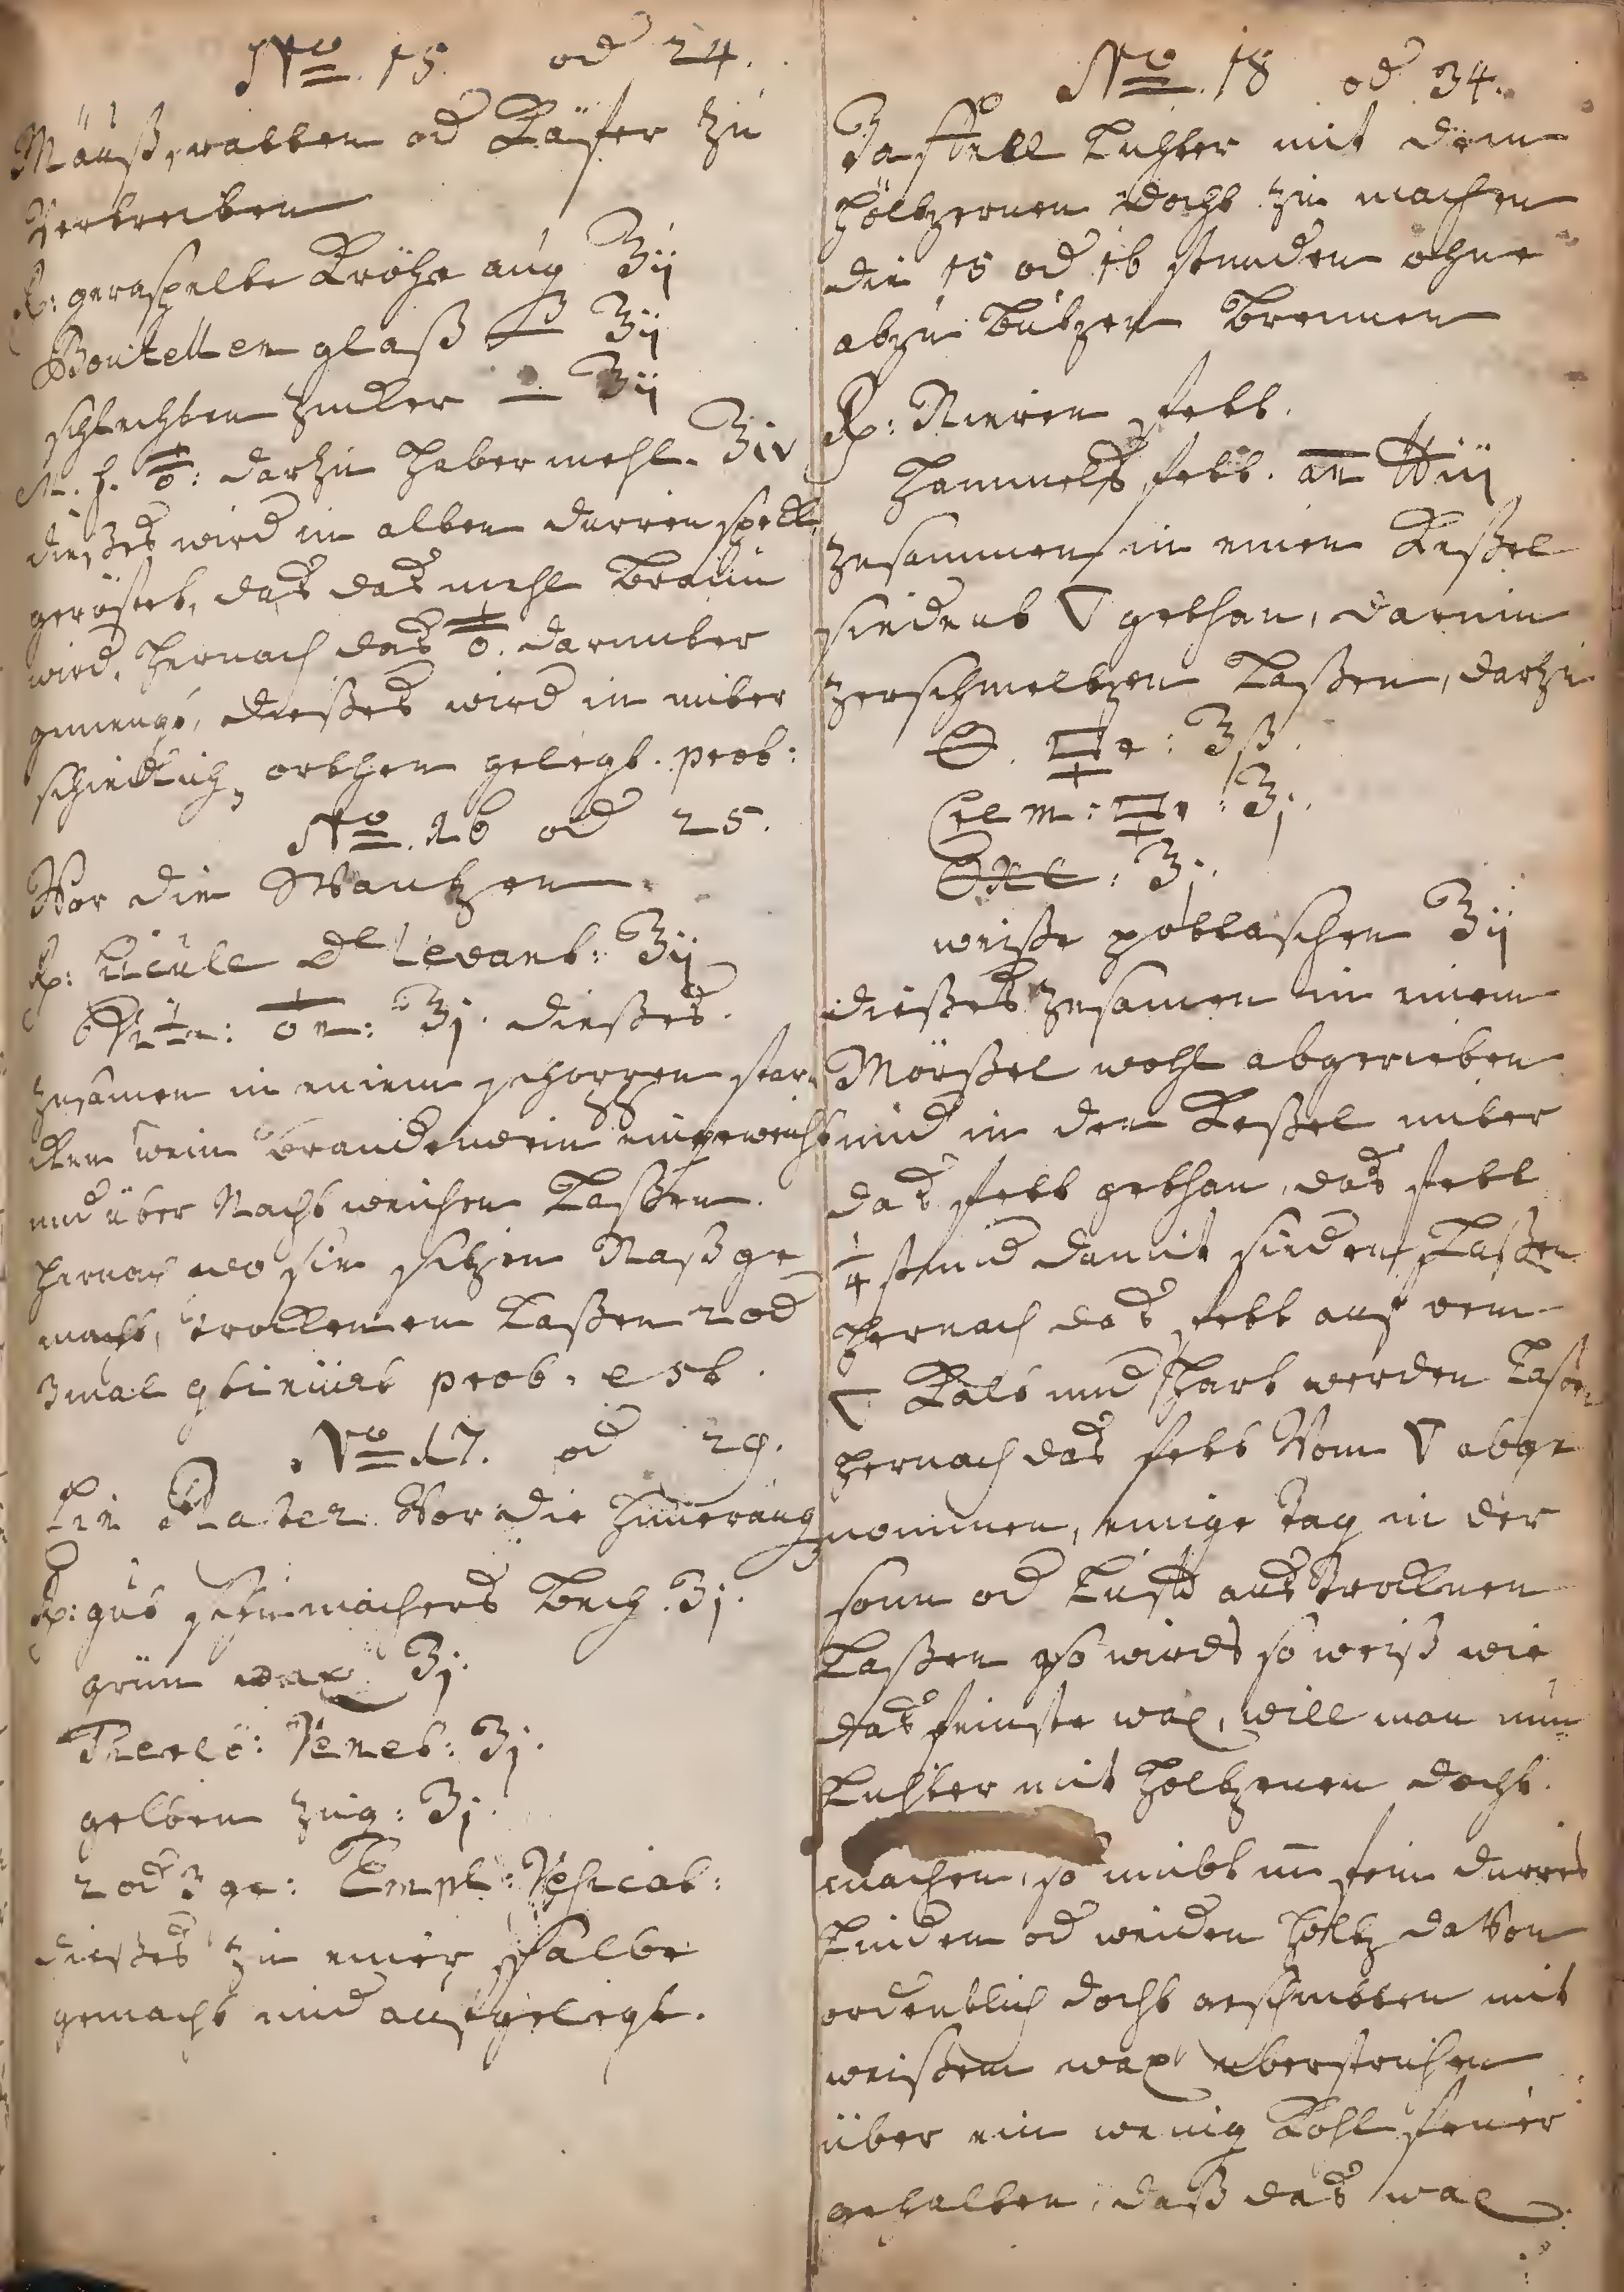 No. 15. od 24.
Mäuß, ratten od Käfer zu
Vertreiben
Rp: geraspelte Kröhe aug ℥ij
Boutellen glaß ℥ij
schlechten Zucker — ℥ij
M. f. : darzu Haber mehl. ℥iv
dießes wird in alten durren speck
geröstet, das das mehl Braun
wird, hernach das darunter
gemengt, dießes wird in unter
schiedlich orthen gelegt. prob:
No. 16 od 25.
Vor die Wantzen.
Rp: de Levant: ℥ij
℥j. dießes
zusamen in einem schoppen star
cken wein Brandenwein eingeweicht
und über Nacht weichen Laßen.
hernach wo sie sitzen Naß ge
macht, trocknen Laßen 2 od
3 mal prob. est.
No. 17. od 29.
Ein Plaster Vor die Hüneraug
Rp: gut schumachers Bech. ℥j.
grün wax ℥j.
Venet: ℥j.
gelben Zug: ℥j.
2 od 3 gr: Empl: Vesicat:
dießes zu einer Salbe
gemacht und aufgelegt.
No. 18 od 34.
Lichter mit dem
höltzernen docht zu machen
die 15 od 16 stunden ohne
abzu Butzen Brennen
Rp: Nieren fett.
Hammels fett. an ℔iij
zusammen in einen Keßel
siedent ▽ gethan, darein
zerschmeltzen Laßen, darzu
℥ß.
℥j.
℥j.
weiße pottaschen ℥ij
dießes zusamen in einem
Mörßel wohl abgerieben
und in den Keßel unter
das fett gethan, das fett
1/4 stund damit sieden Laßen
hernach das fett auf dem
▽ Kalt und Hart werden Laßen
hernach das fett Vom ▽ abge
nommen, einige tag in der
sonn od Lufft aus trocknen
Laßen so wirds so weiß wie
das feinste wax, will man nun
Lichter mit holtzenen docht
machen, so nimbt m̄ fein durres
Linden od weiden Holtz da Von
ordentlich docht geschnitten mit
weißem wax überstrichen
über ein wenig Kohl feuer
gehalten, daß das wax